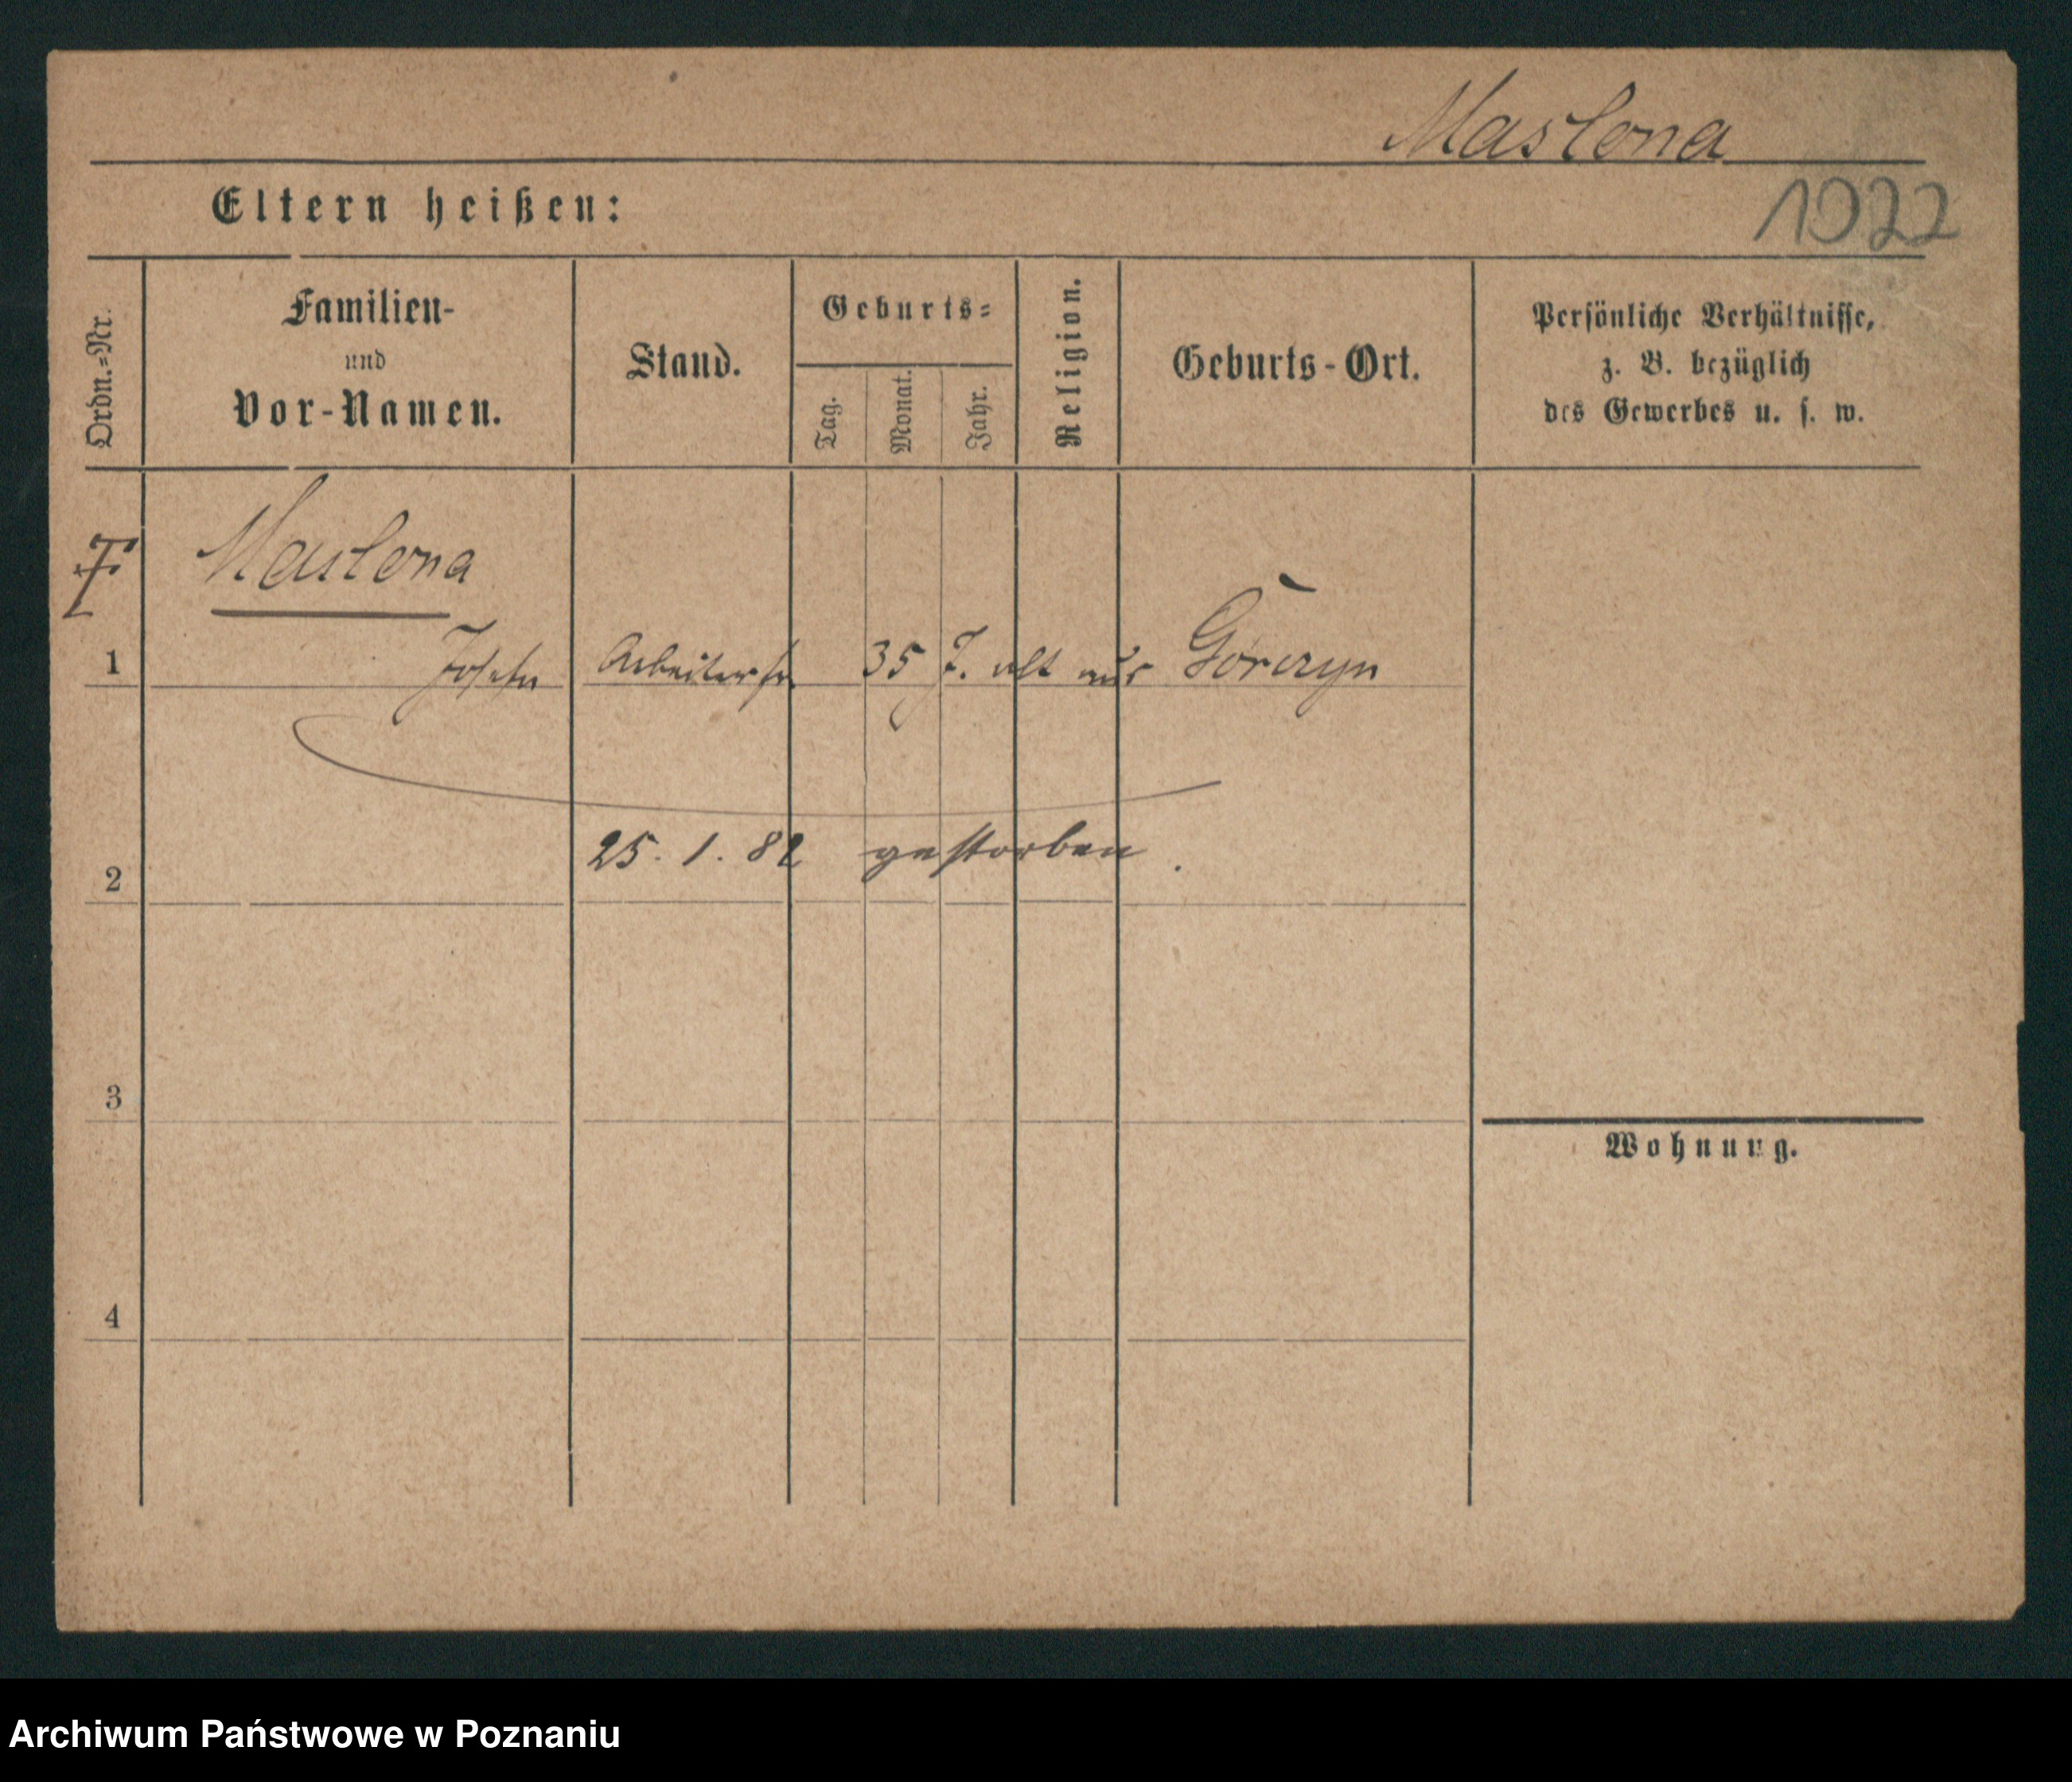 Maslona
1022
Eltern heißen:
Ordn.-Nr.
Familien-
und
Vor-Namen.
Stand.
Geburts-
Tag.
Monat.
Jahr.
Religion.
Geburts-Ort.
Persönliche Verhältnisse,
z. B. bezüglich
des Gewerbes u. s. w.
Maslona
1 Josefa 35 J. alt aus Górczyn
2 25. 1. 82 gestorben.
3
Wohnung.
4
Archiwum Państwowe w Poznaniu